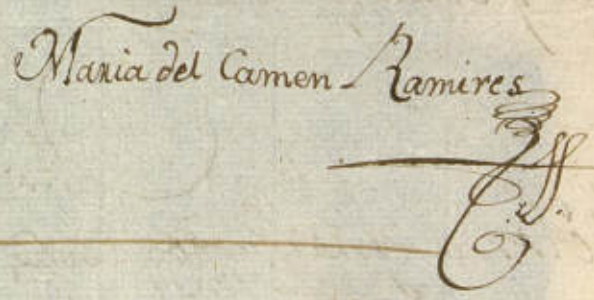 Maria del Camen Ramires